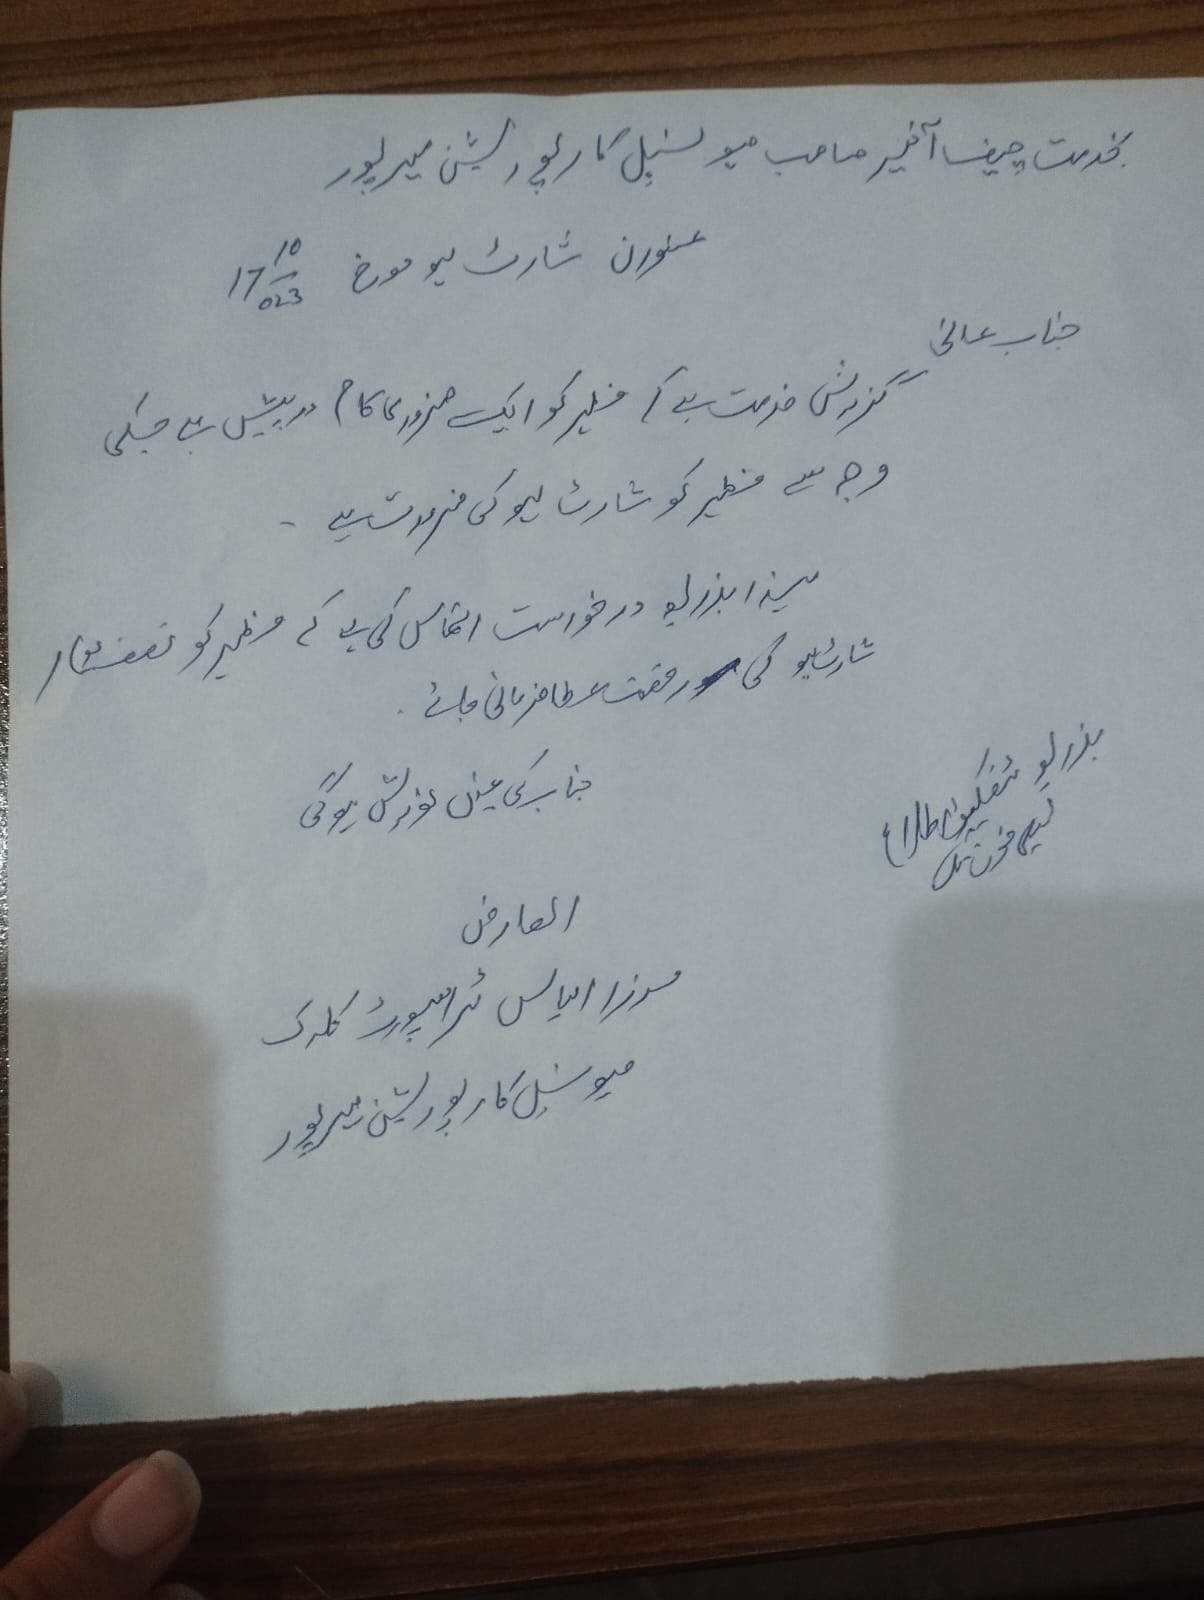 بخدمت چیف آفیسر صاحب میونسپل کارپوریشن میرپور
عنوان شارٹ لیو مورخہ 17/10/023
جناب عالی
گزارش خدمت ہے کہ مظہر کو ایک ضروری کام درپیش ہے جسکی
وجہ سے مظہر کو شارٹ لیو کی ضرورت ہے۔
لہذا بذریعہ درخواست التماس کی ہے کہ مظہر کو
شارٹ لیو کی رخصت عطا فرمائی جائے۔
جناب کی عین نوازش ہوگی
بذریعہ
ٹیلی فون
العارض
مرزا الیاس ٹرانسپورٹ کلرک
میونسپل کارپوریشن میرپور